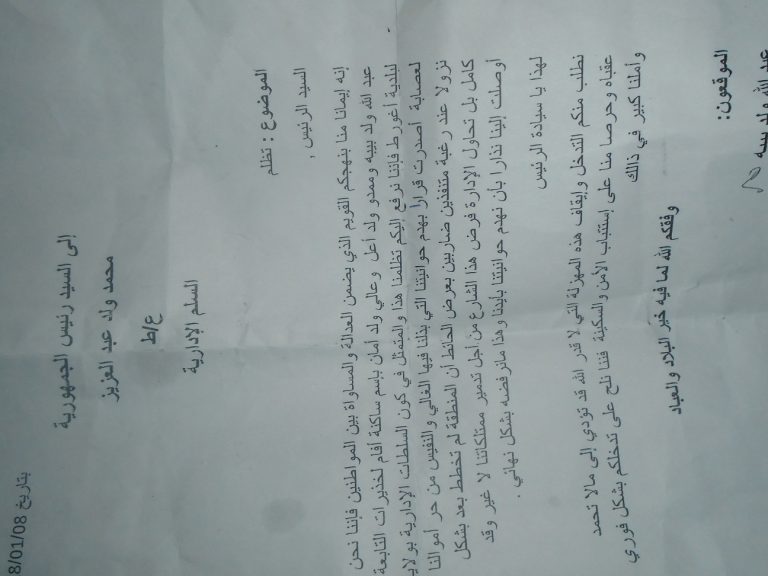 بتاريخ 8/01/08
إلى السيد رئيس الجمهورية
محمد ولد عبد العزيز
ع/ط
السلم الإدارية
الموضوع : تظلم
السيد الرئيس ,
إنه إيمانا منا بنهجكم القويم الذي يضمن العدالة والمساواة بين المواطنين فإننا نحن
عبد الله ولد بييه وممدو ولد أعل وعالي ولد امان بإسم ساكنة أفام لخذيرات التابعة
لبلدية أغورط فإننا نرفع إليكم تظلمنا هذا والمتمثل في كون السلطات الإدارية بولاية
لعصابة أصدرت قرارا بهدم حوانيتنا التي بذلنا فيها الغالي والنفيس من حر أموالنا
نزولا عند رغبة متنفذين ضاربين بعرض الحائط أن المنطقة لم تخطط بعد بشكل
كامل بل تحاول الإدارة فرض هذا الشارع من أجل تدمير ممتلكاتنا لا غير وقد
أوصلت إلينا نذارا بأن نهدم حوانيتنا بأيدنا وهذا مانرفضه بشكل نهائي .
لهذا يا سيادة الرئيس
نطلب منكم التدخل وإيقاف هذه المهزلة التي لا قدر الله قد تؤدي إلى مالا تحمد
عقباه وحرصا منا على إستتباب الأمن والسكينة فننا نلح على تدخلكم بشكل فوري
وأملنا كبير في ذالك
وفقكم الله لما فيه خير البلاد والعباد
الموقعون:
عبد الله ولد بييه